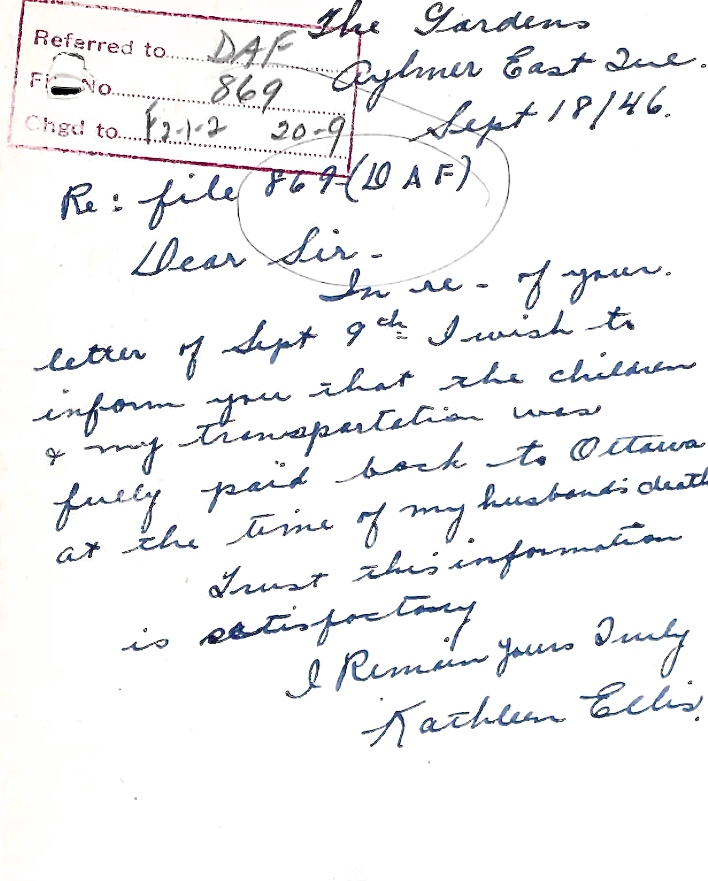 The Gardens
Aylmer East Que.
Sept 18/46.
Referred to DAF
File No. 869
Chgd to 20-9
Re: file 869 (DAF)
Dear Sir -
In re - of your
letter of Sept 9th I wish to
inform you that the children
& my transportation was
fully paid back to Ottawa
at the time of my husband's death
Trust this information
is satisfactory
I Remain yours Truly
Kathleen Ellis.